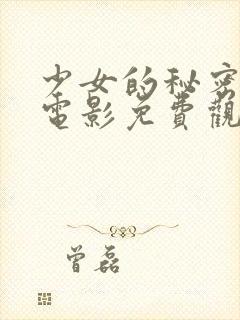 少女的秘密
電影免費觀
曾磊